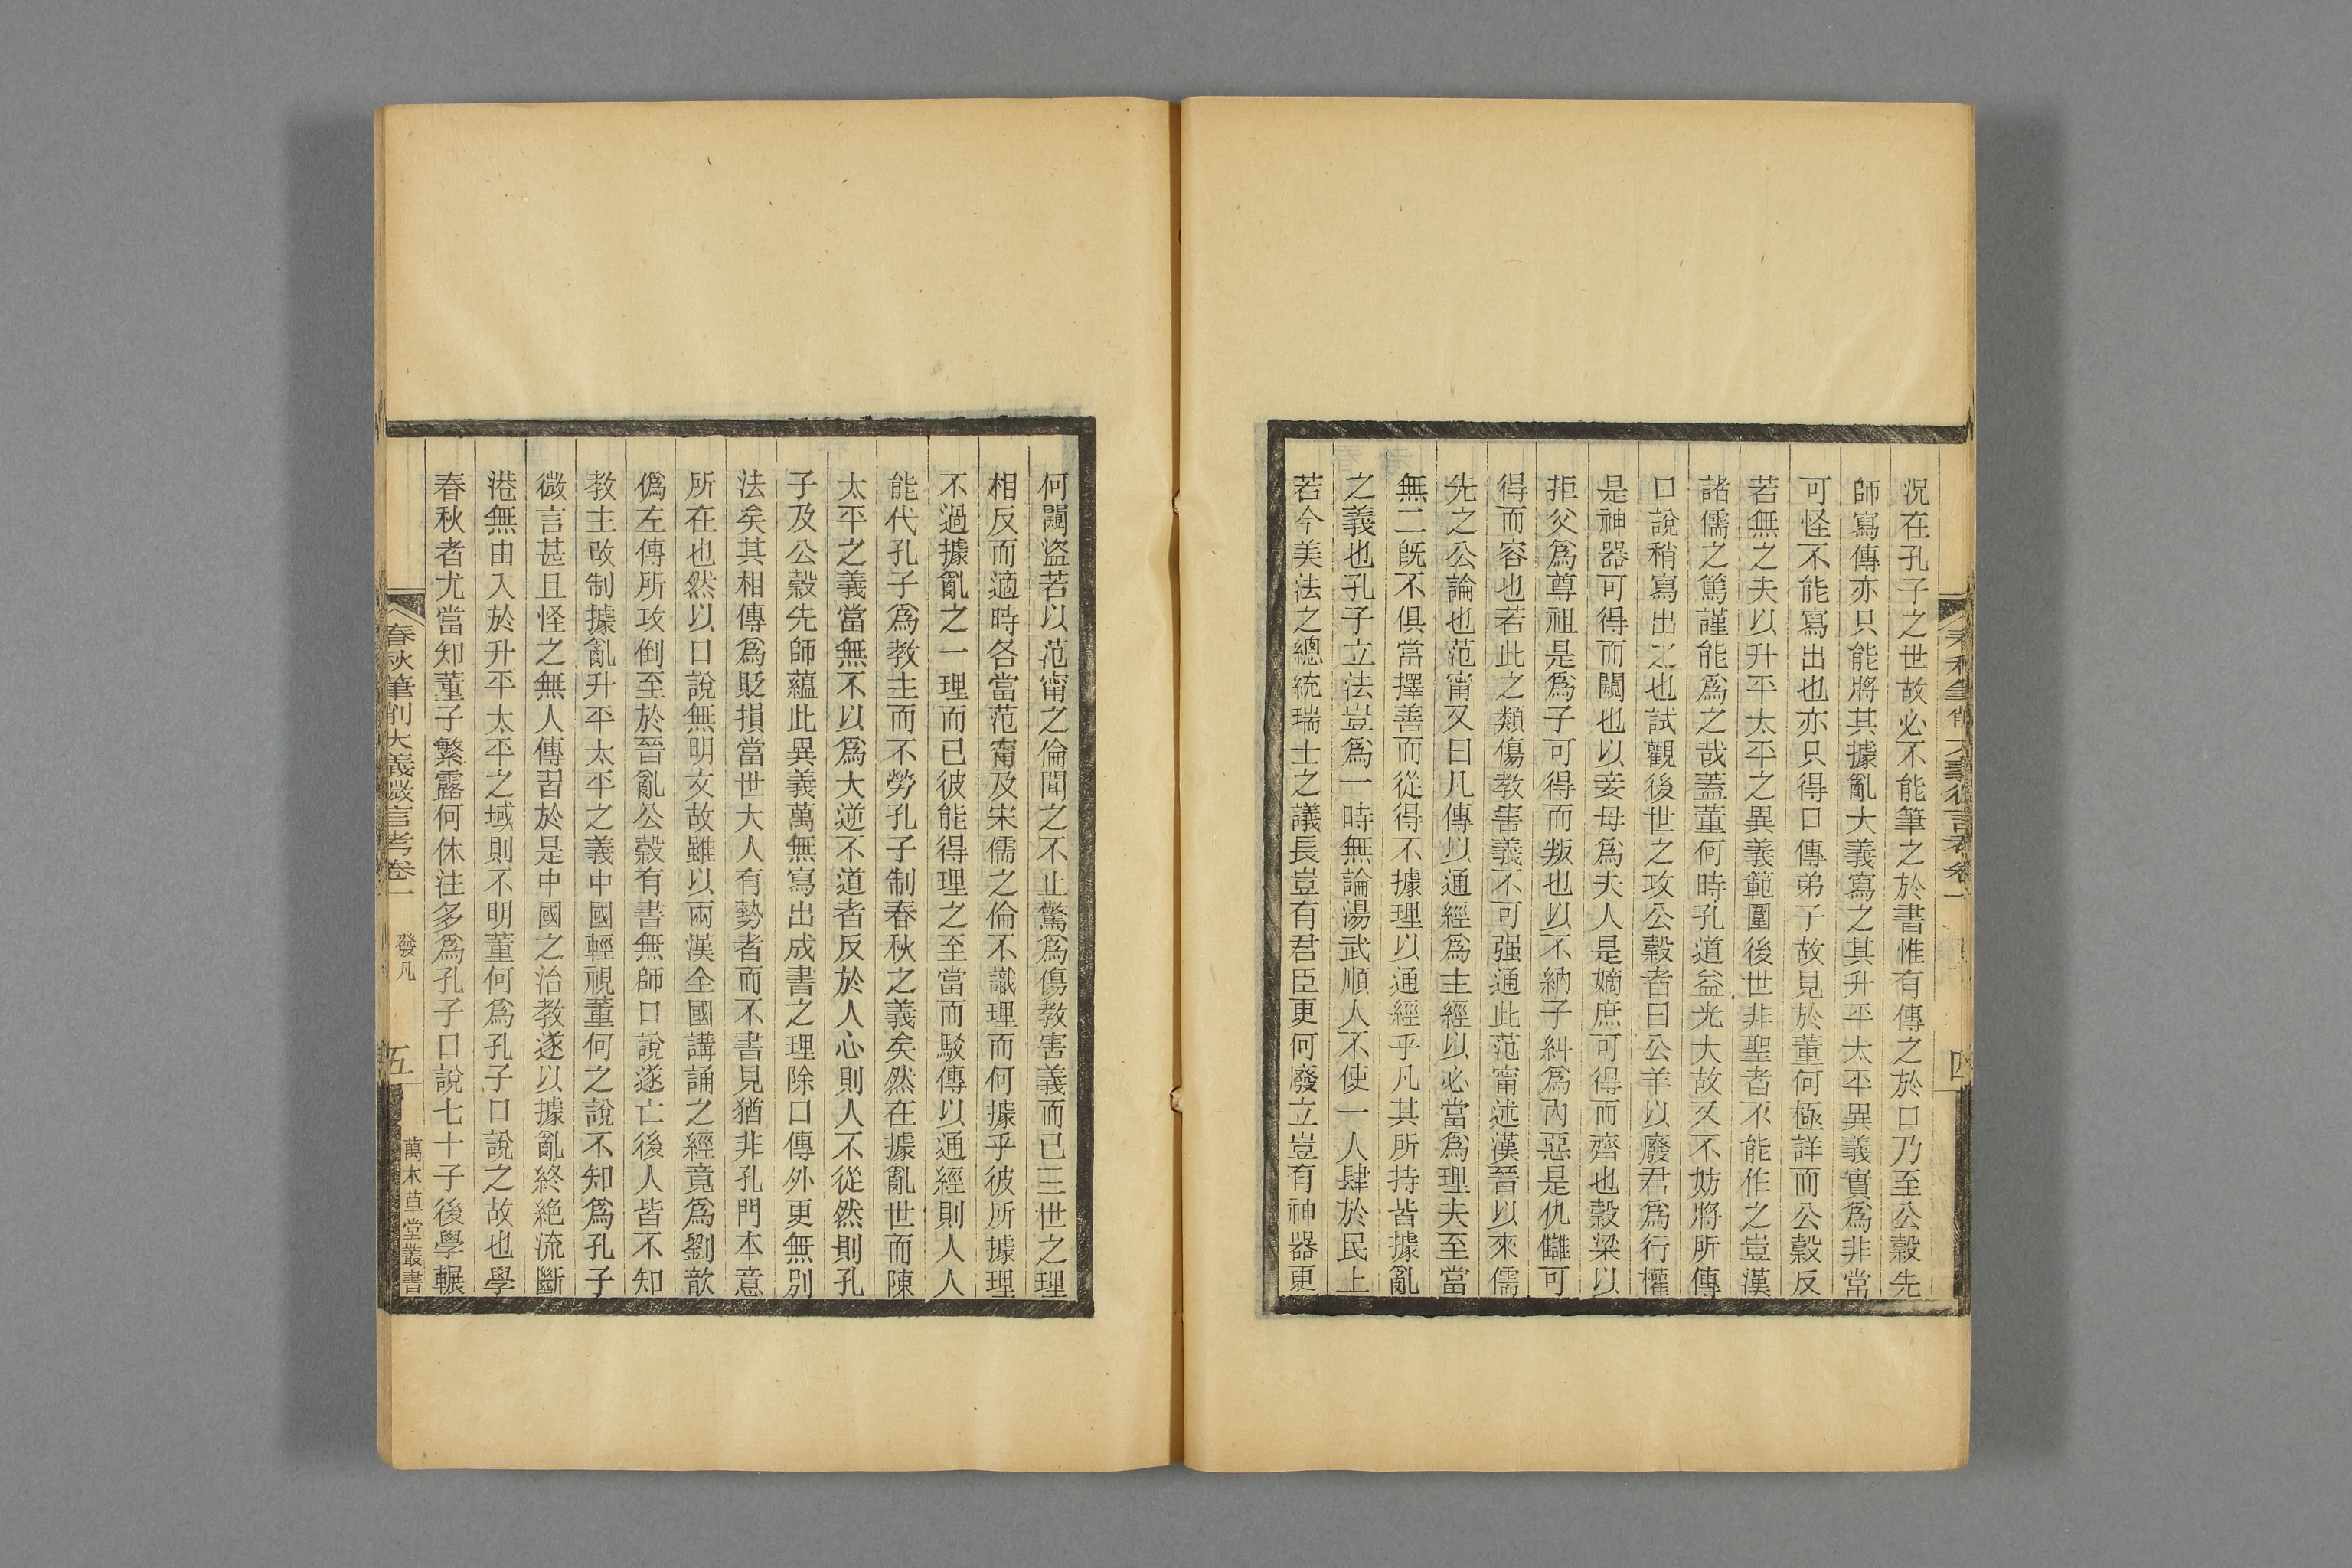 況在孔子之世故必不能筆之於書惟有傳之於口乃至公穀先
師寫傳亦只能將其據亂大義寫之其升平太平異義實為非常
可怪不能寫出也亦只得口傳弟子故見於董何極詳而公穀反
若無之夫以升平太平之異義範圍後世非聖者不能作之豈漢
諸儒之篤謹能為之哉蓋董何時孔道益光大故又不妨將所傳
口說稍寫出之也試觀後世之攻公穀者曰公羊以廢君為行權
是神器可得而闚也以妾母為夫人是嫡庶可得而齊也穀梁以
拒父為尊祖是為子可得而叛也以不納子糾為內惡是仇讎可
得而容也若此之類傷教害義不可强通此范甯述漢晉以來儒
先之公論也范甯又曰凡傳以通經為主經以必當為理夫至當
無二既不俱當擇善而從得不據理以通經乎凡其所持皆據亂
之義也孔子立法豈為一時無論湯武順人不使一人肆於民上
若今美法之總統瑞士之議長豈有君臣更何廢立豈有神器更
何闚盜若以范甯之倫聞之不止驚為傷教害義而已三世之理
相反而適時各當范甯及宋儒之倫不識理而何據乎彼所據理
不過據亂之一理而已彼能得理之至當而駁傳以通經則人人
能代孔子為教主而不勞孔子制春秋之義矣然在據亂世而陳
太平之義當無不以為大逆不道者反於人心則人不從然則孔
子及公穀先師蘊此異義萬無寫出成書之理除口傳外更無別
法矣其相傳為貶損當世大人有勢者而不書見猶非孔門本意
所在也然以口說無明文故雖以兩漢全國講誦之經竟為劉歆
偽左傳所攻倒至於晉亂公穀有書無師口說遂亡後人皆不知
教主改制據亂升平太平之義中國輕視董何之說不知為孔子
微言甚且怪之無人傳習於是中國之治教遂以據亂終絶流斷
港無由入於升平太平之域則不明董何為孔子口說之故也學
春秋者尤當知董子繁露何休注多為孔子口說七十子後學輾
春秋筆削大義微言考卷一
發凡
五
萬木草堂叢書